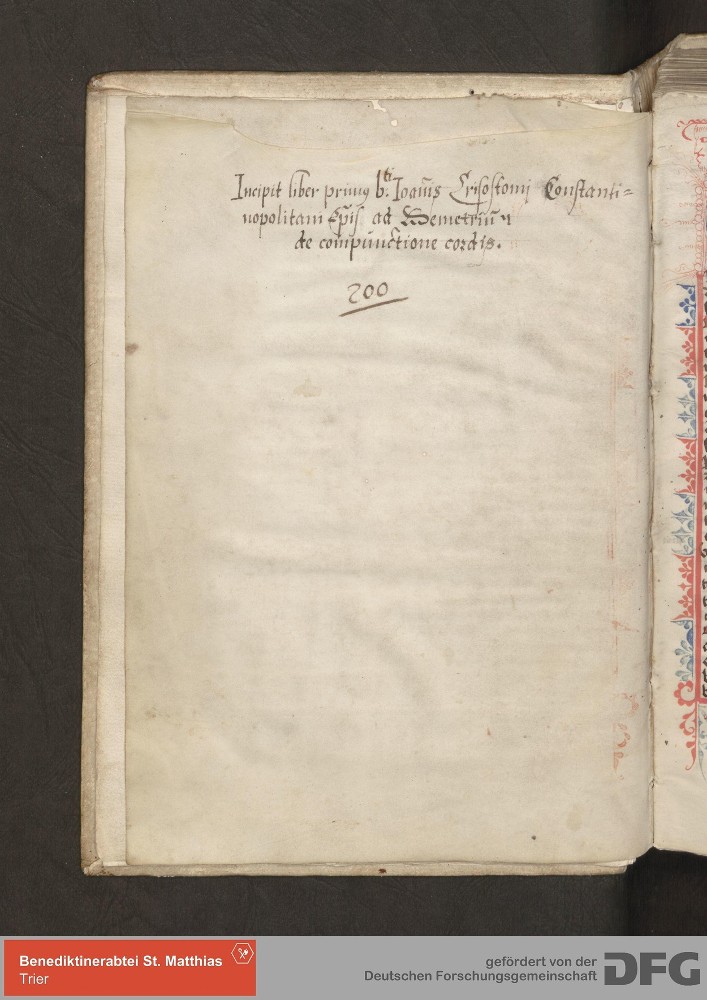 Incipit liber primꝰ b.ti Ioan̄is Crisostomi Constanti=
nopolitani Ep̄is ad Demetriū
de compunctione cordis.
200
Benediktinerabtei St. Matthias
Trier
gefördert von der
Deutschen Forschungsgemeinschaft
DFG